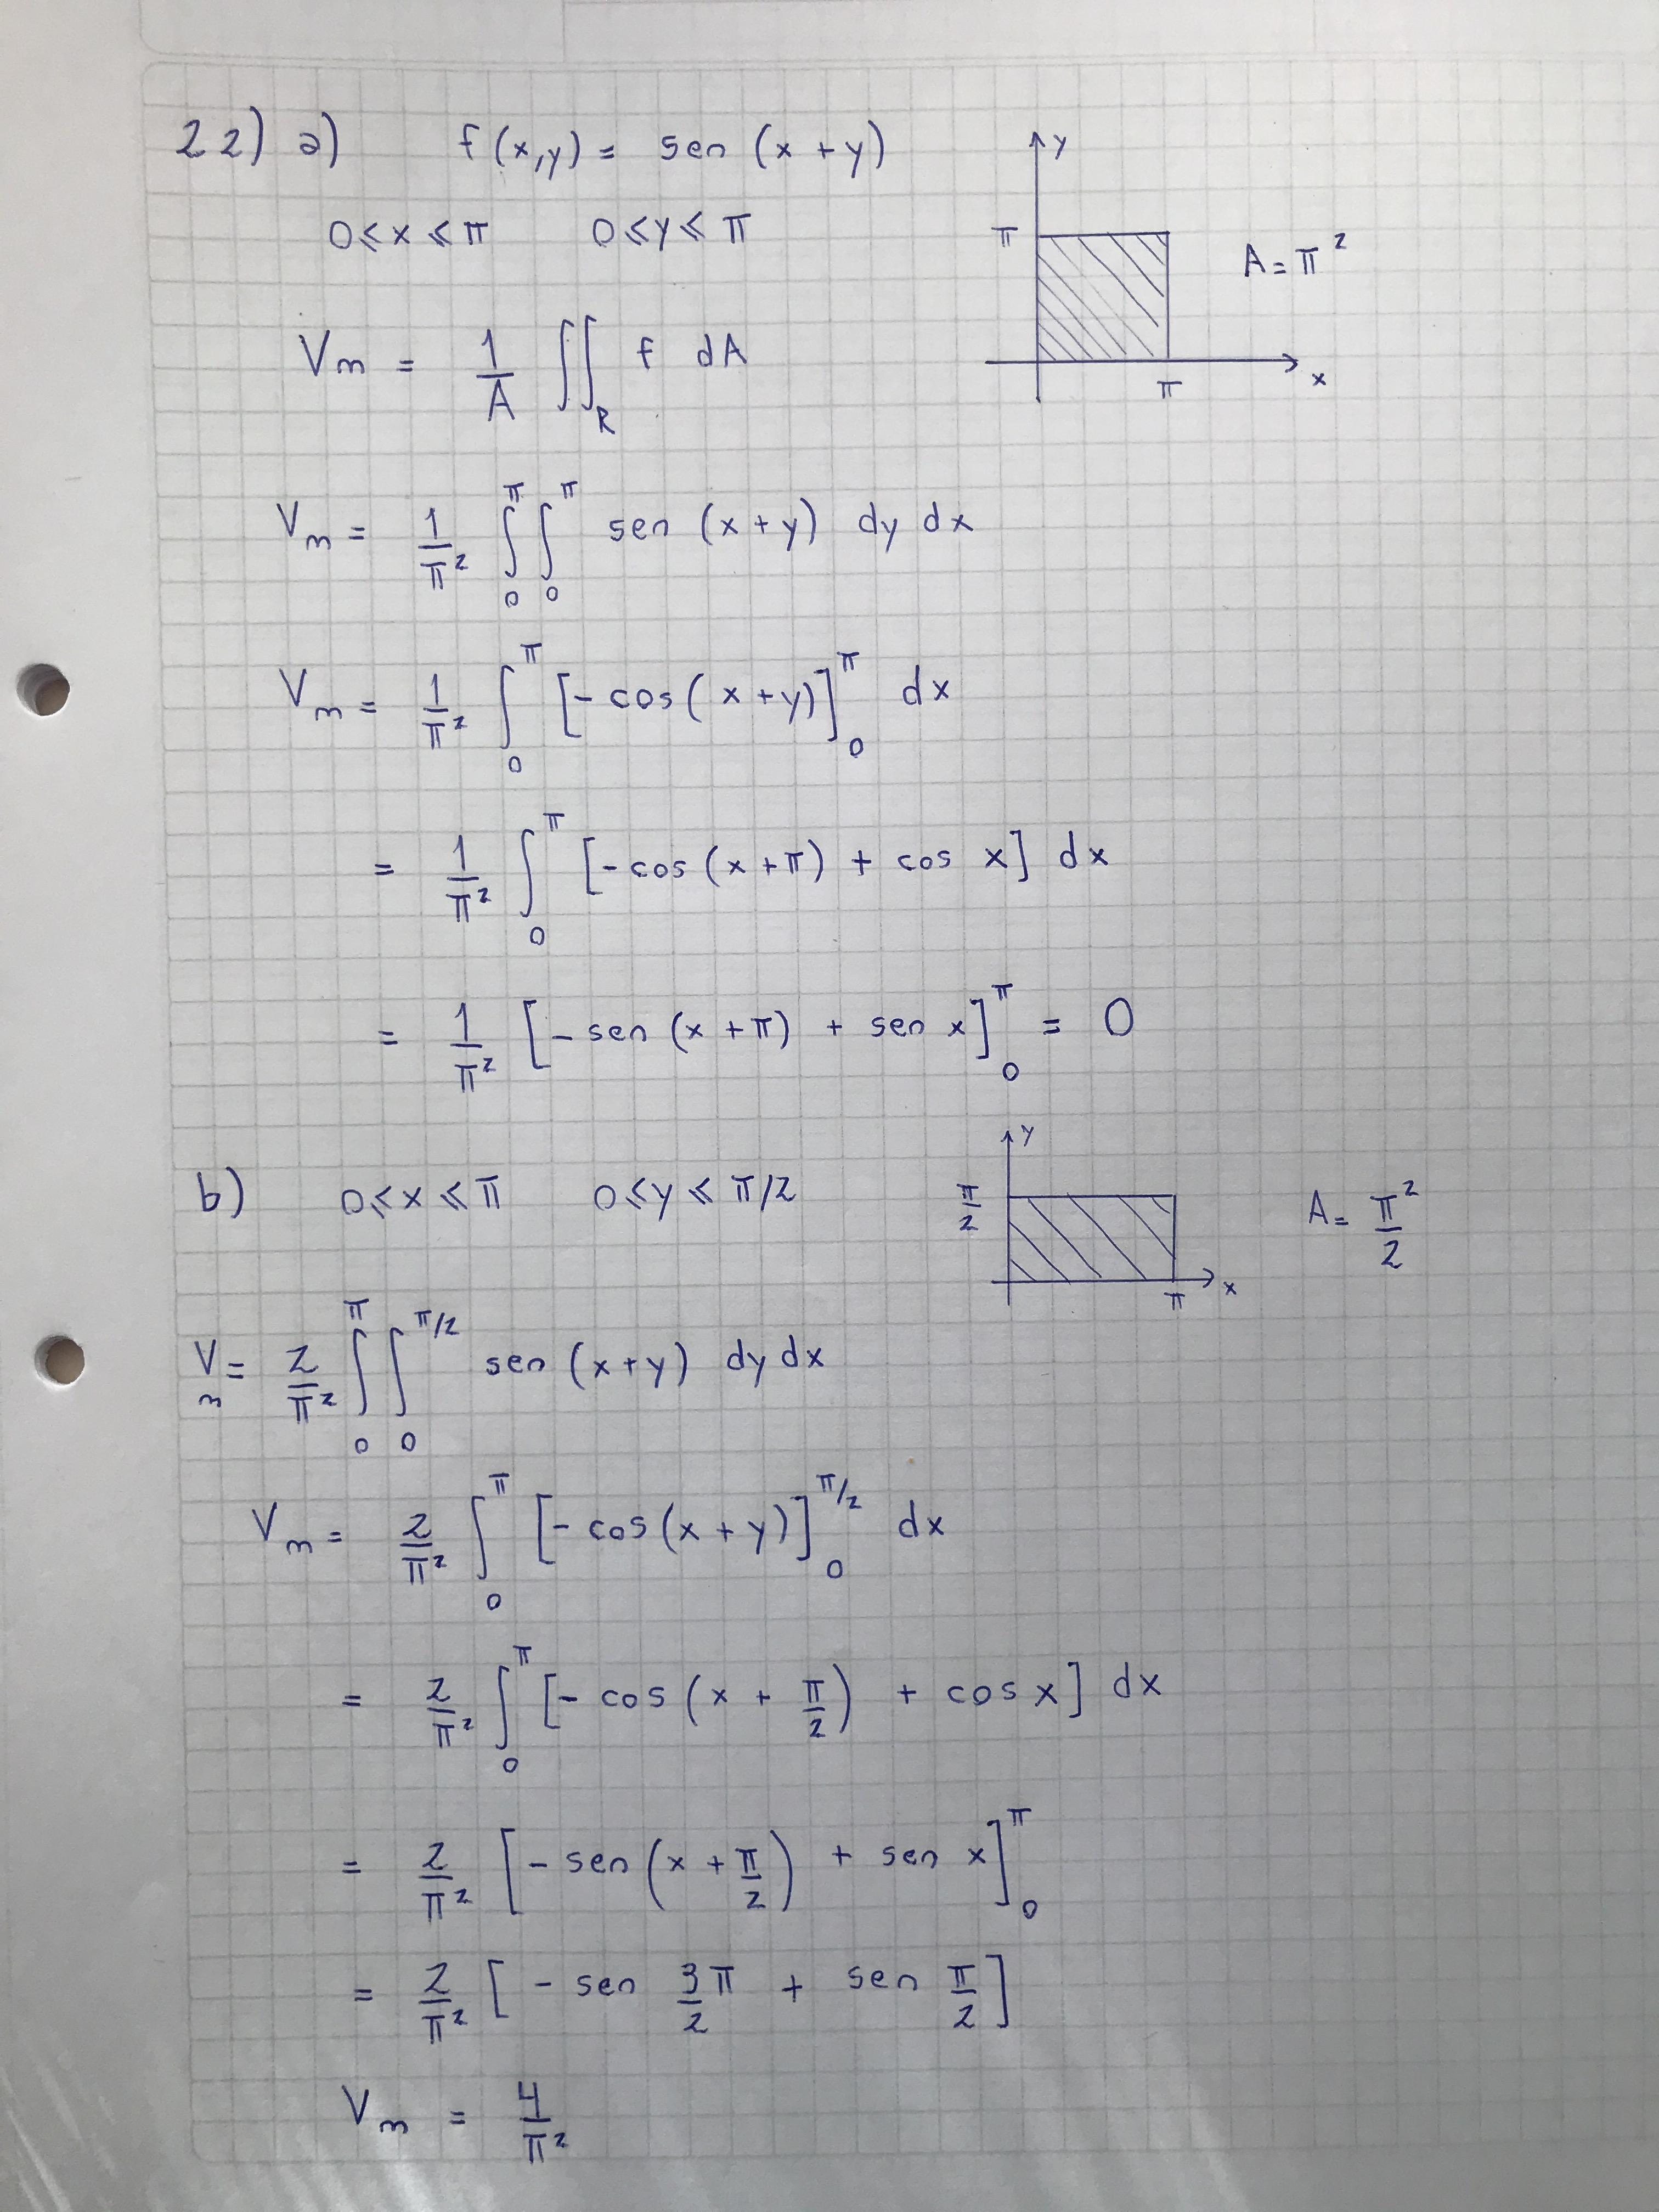 22) a) f(x,y) = sen (x + y)
0 ⩽ x ⩽ π 0 ⩽ y ⩽ π
y
π
π
x
A = π²
Vm = 1/A ∬_R f dA
Vm = 1/π² ∫_0^π ∫_0^π sen (x + y) dy dx
Vm = 1/π² ∫_0^π [- cos( x + y)]_0^π dx
= 1/π² ∫_0^π [- cos (x + π) + cos x] dx
= 1/π² [- sen (x + π) + sen x]_0^π = 0
b) 0 ⩽ x ⩽ π 0 ⩽ y ⩽ π/2
y
π/2
π
x
A = π²/2
Vm = 2/π² ∫_0^π ∫_0^{π/2} sen (x+y) dy dx
Vm = 2/π² ∫_0^π [- cos (x + y)]_0^{π/2} dx
= 2/π² ∫_0^π [- cos (x + π/2) + cos x] dx
= 2/π² [- sen (x + π/2) + sen x]_0^π
= 2/π² [- sen 3π/2 + sen π/2]
Vm = 4/π²